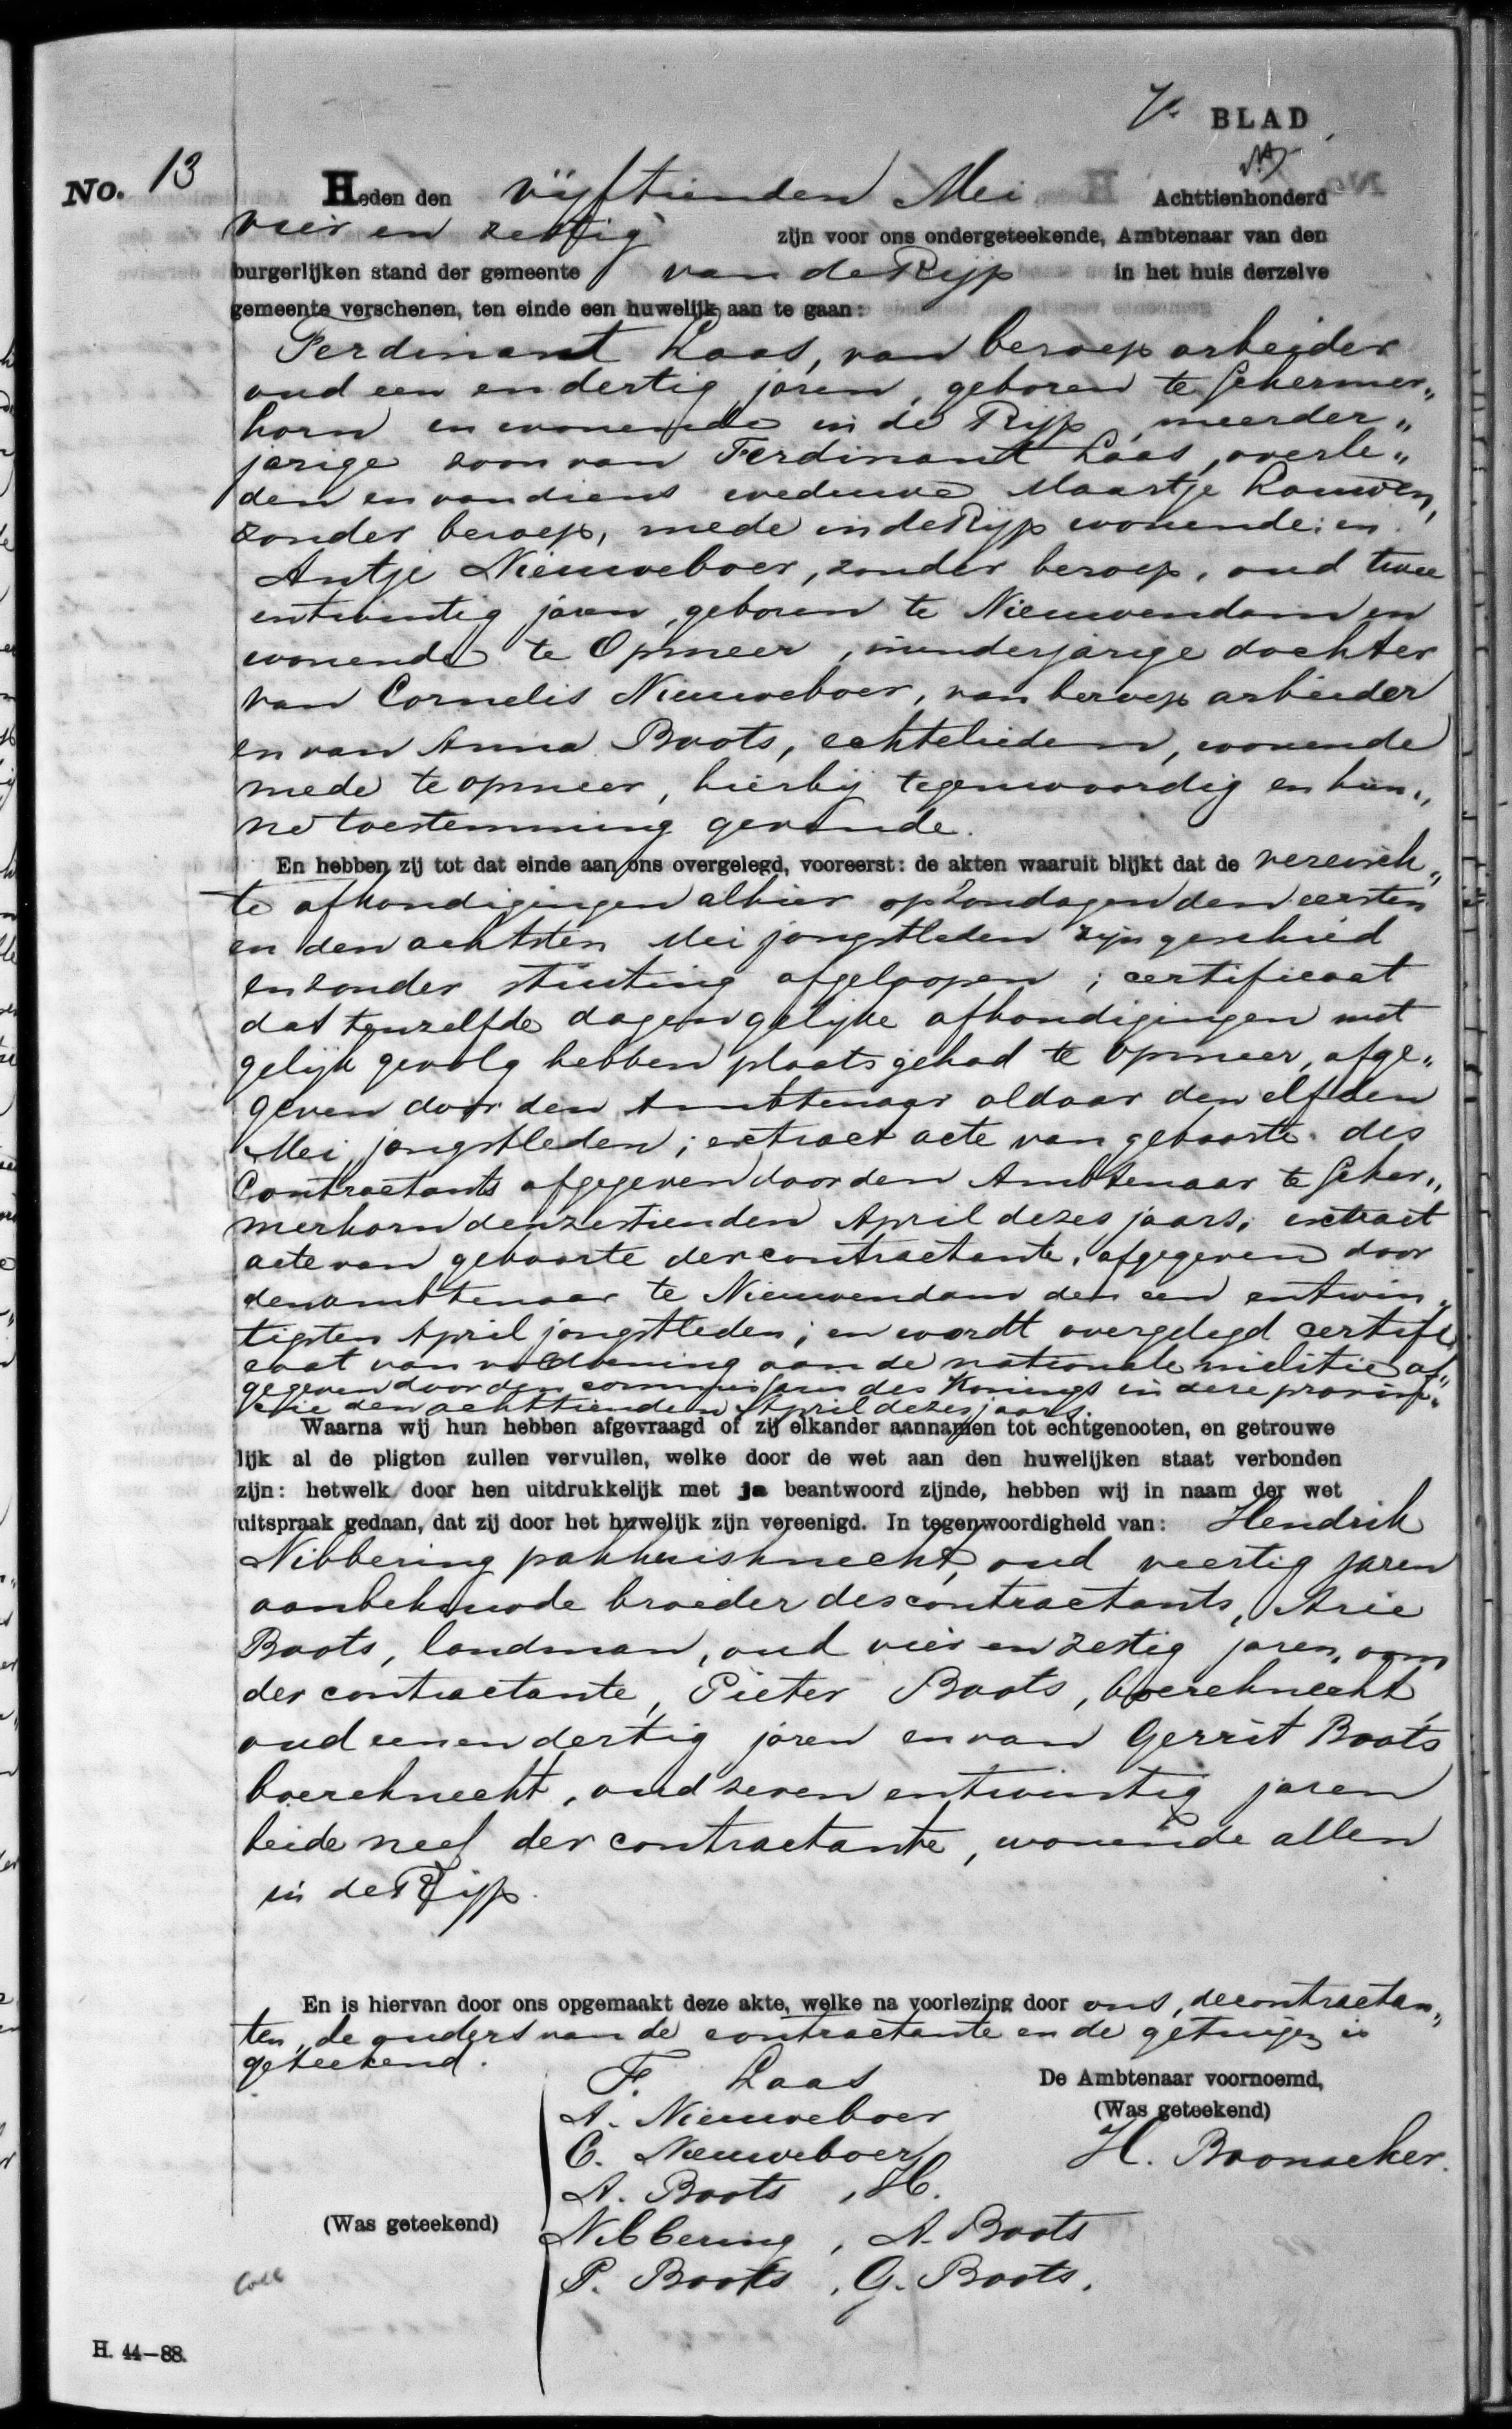 7e BLAD
No. 13
Heden den vijftienden Mei Achttienhonderd
vier en zestig zijn voor ons ondergeteekende, Ambtenaar van den
burgerlijken stand der gemeente van de Rijp in het huis derzelve
gemeente verschenen, ten einde een huwelijk aan te gaan:
Ferdinant Laas, van beroep arbeider
oud een en dertig jaren, geboren te Schermer„
horn en wonende in de Rijp, meerder„
jarige zoon van Ferdinant Laas, overle„
den en van diens weduwe Maartje Kouwen,
zonder beroep, mede in de Rijp wonende; en
Antje Nieuweboer, zonder beroep, oud twee
entwintig jaren, geboren te Nieuwendam en
wonende te Opmeer, minderjarige dochter
van Cornelis Nieuweboer, van beroep arbeider
en van Anna Boots, echtelieden, wonende
mede te opmeer, hierbij tegenwoordig en hun„
ne toestemming gevende.
En hebben zij tot dat einde aan ons overgelegd, vooreerst: de akten waaruit blijkt dat de vereisch„
te afkondigingen alhier op Zondagen den eersten
en den achtsten Mei jongstleden zijn geschied
en zonder stuiting afgeloopen; certificaat
dat tenzelfde dagen gelijke afkondigingen met
gelijk gevolg hebben plaats gehad te Opmeer, afge„
geven door den Ambtenaar aldaar den elfden
Mei jongstleden; extract acte van geboorte des
Contractants afgegeven door den Ambtenaar te Scher„
merhorn den zestienden April dezes jaars; extract
acte van geboorte der contractante, afgegeven door
den ambtenaar te Nieuwendam den een entwin„
tigsten April jongstleden; en wordt overgelegd certifi„
caat van voldoening aan de nationale militie af„
gegeven door den commissaris des Konings in deze provin„
cie den achttienden April dezes jaars.
Waarna wij hun hebben afgevraagd of zij elkander aannamen tot echtgenooten, en getrouwe
lijk al de pligten zullen vervullen, welke door de wet aan den huwelijken staat verbonden
zijn: hetwelk door hen uitdrukkelijk met ja beantwoord zijnde, hebben wij in naam der wet
uitspraak gedaan, dat zij door het huwelijk zijn vereenigd. In tegenwoordigheid van: Hendrik
Nibbering pakhuisknecht, oud veertig jaren
aanbehuwde broeder des contractants, Arie
Boots, landman, oud vier en zestig jaren, oom
der contractante, Pieter Boots, boereknecht,
oud een en dertig jaren en van Gerrit Boots
boereknecht, oud zeven entwintig jaren
beide neef der contractante, wonende allen
in de Rijp.
En is hiervan door ons opgemaakt deze akte, welke na voorlezing door ons, de contractan„
ten, de ouders van de contractante en de getuigen is
geteekend.
F. Laas
De Ambtenaar voornoemd,
A. Nieuweboer
(Was geteekend)
C. Nieuweboer
H. Boonacker.
A. Boots, H.
(Was geteekend)
Nibbering, A. Boots
P. Boots, G. Boots.
Coll
H. 44—88.